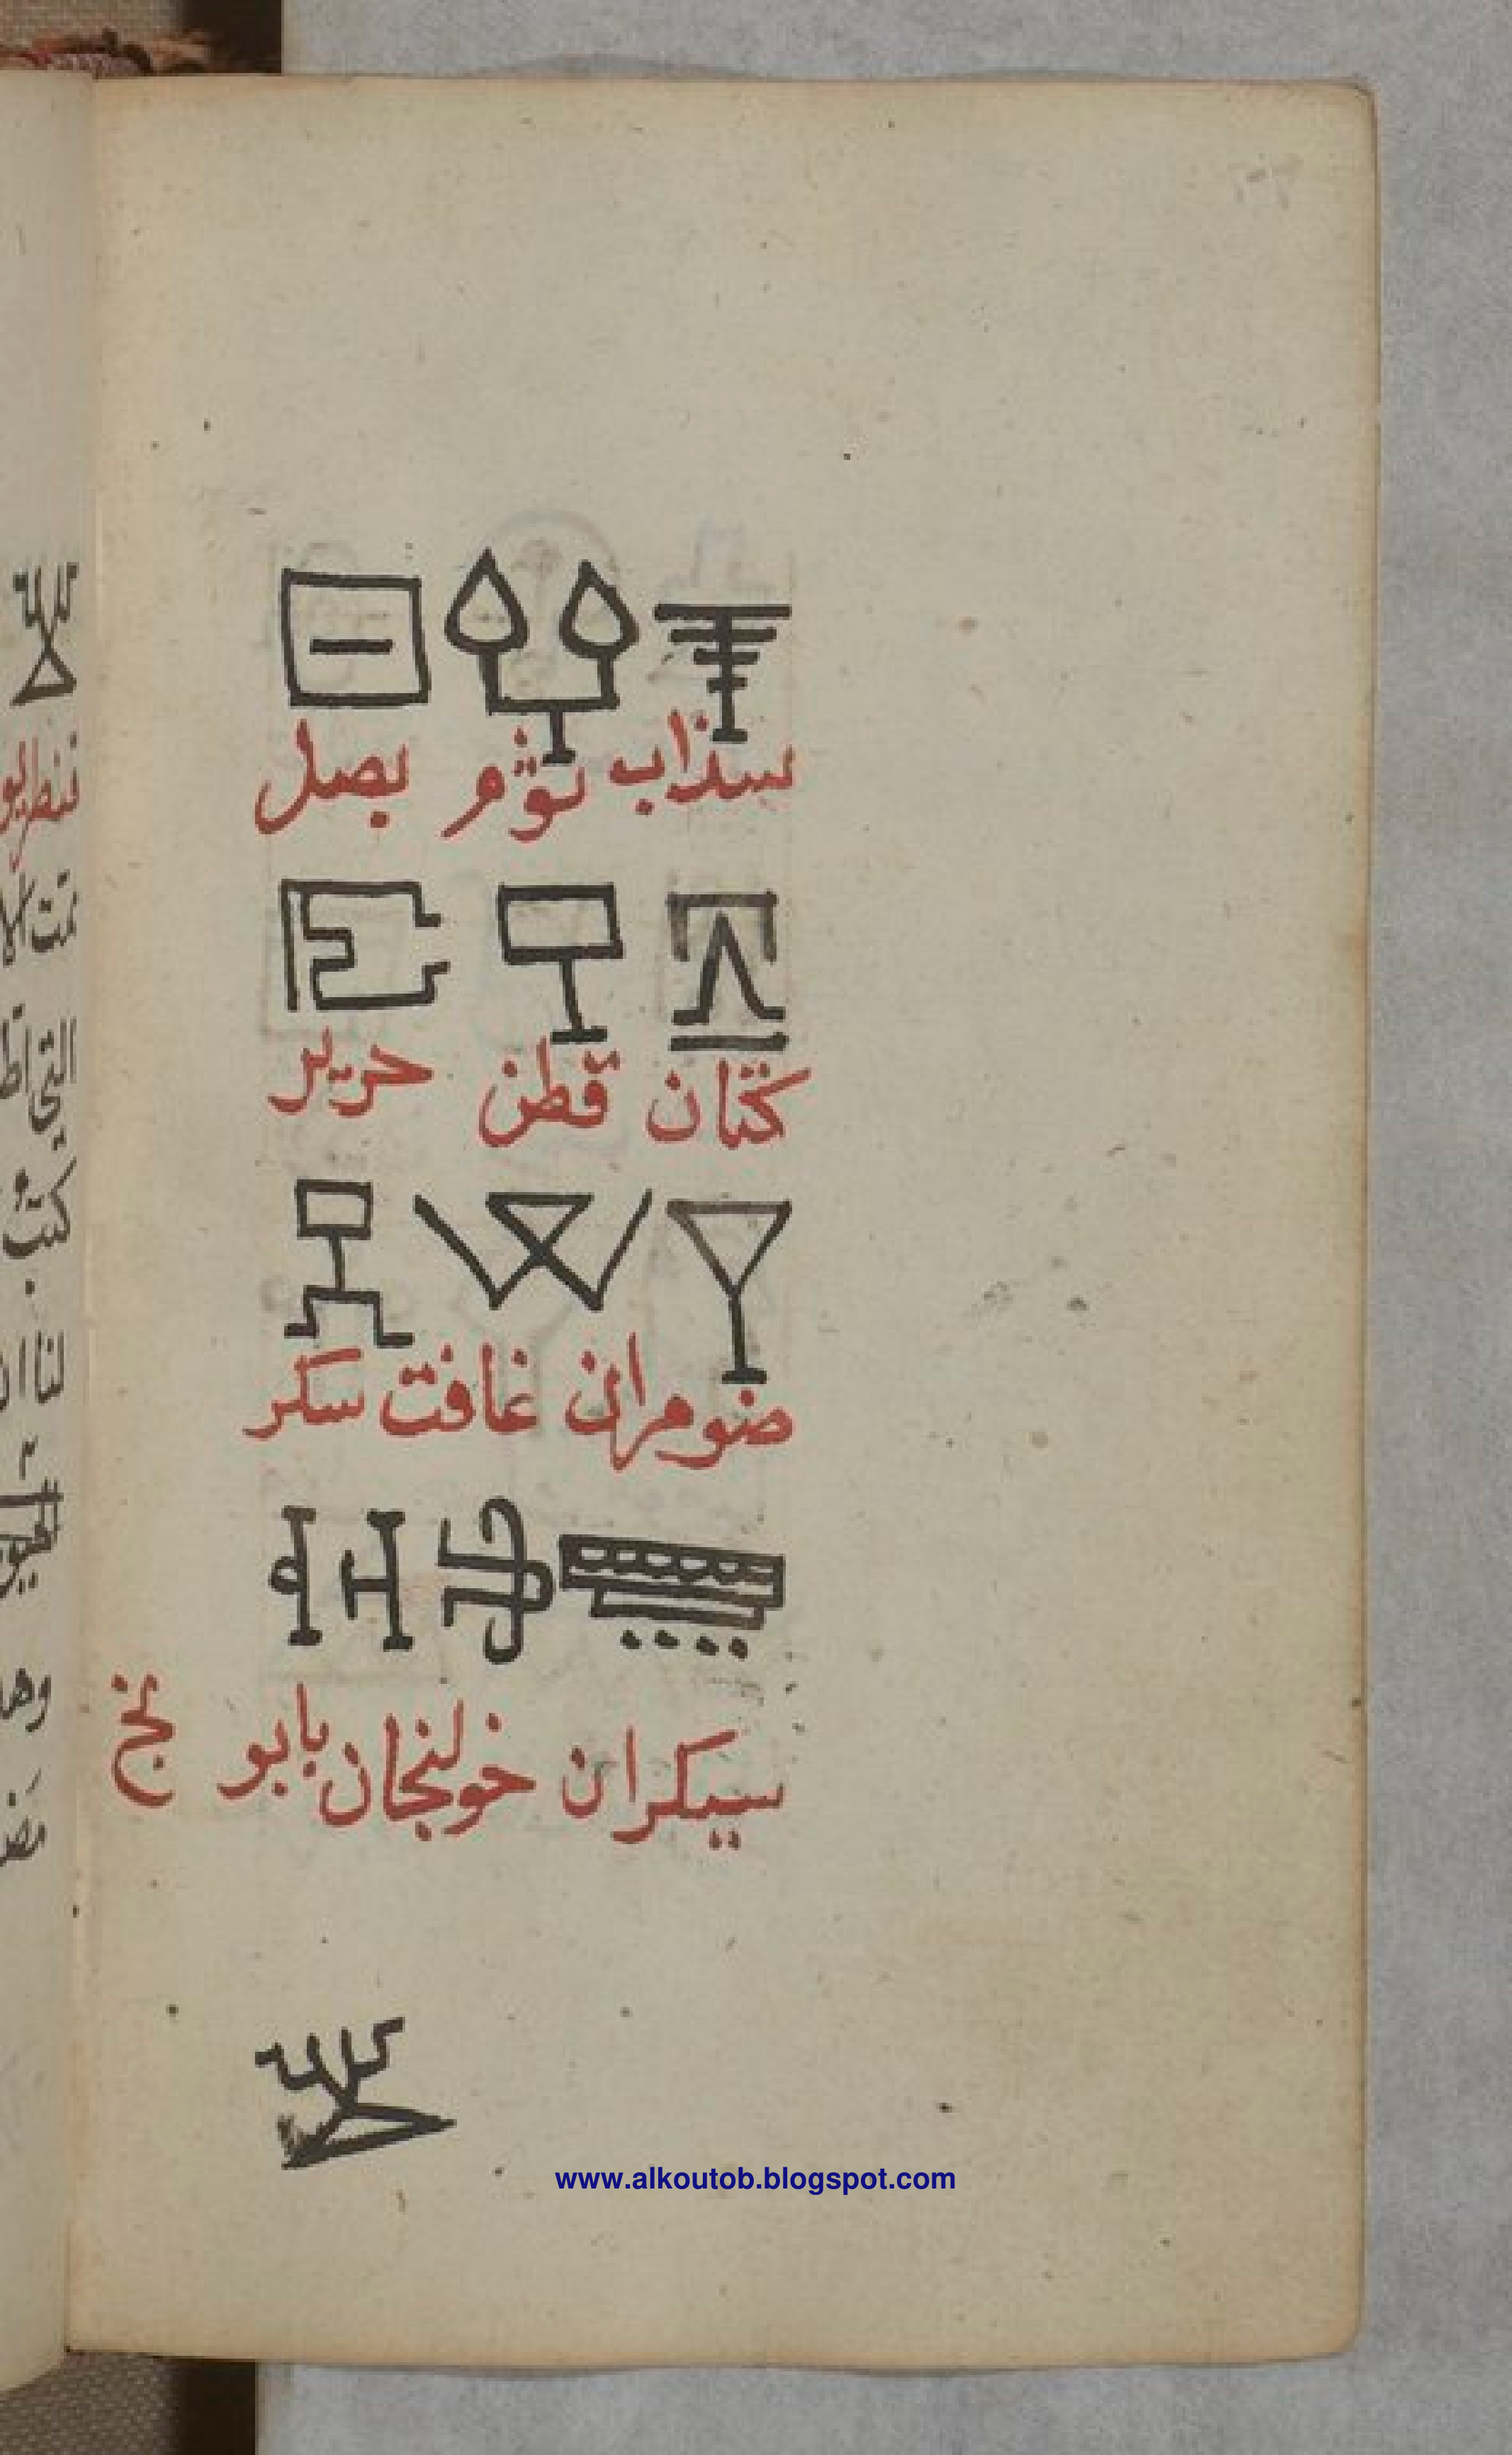 سذاب ثوم بصل
كتان قطن حرير
ضومران غافت سكر
سيكران خولنجان بابو نج
www.alkoutob.blogspot.com